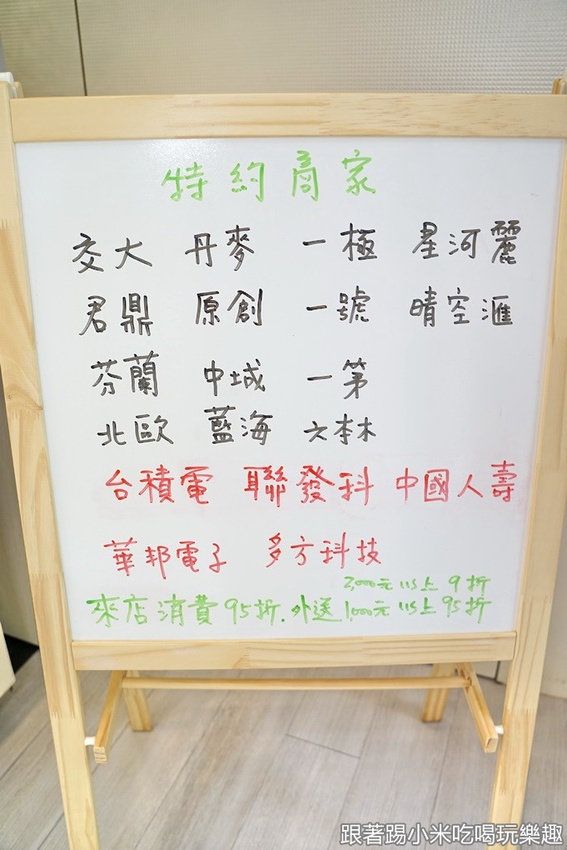 特約商家
交大 丹麥 一極 星河麗
君鼎 原創 一號 晴空滙
芬蘭 中城 一第
北歐 藍海 六本木
台積電 聯發科 中國人壽
華邦電子 多方科技
2,000元以上9折
來店消費95折.外送1,000元以上95折
跟著踢小米吃喝玩樂趣